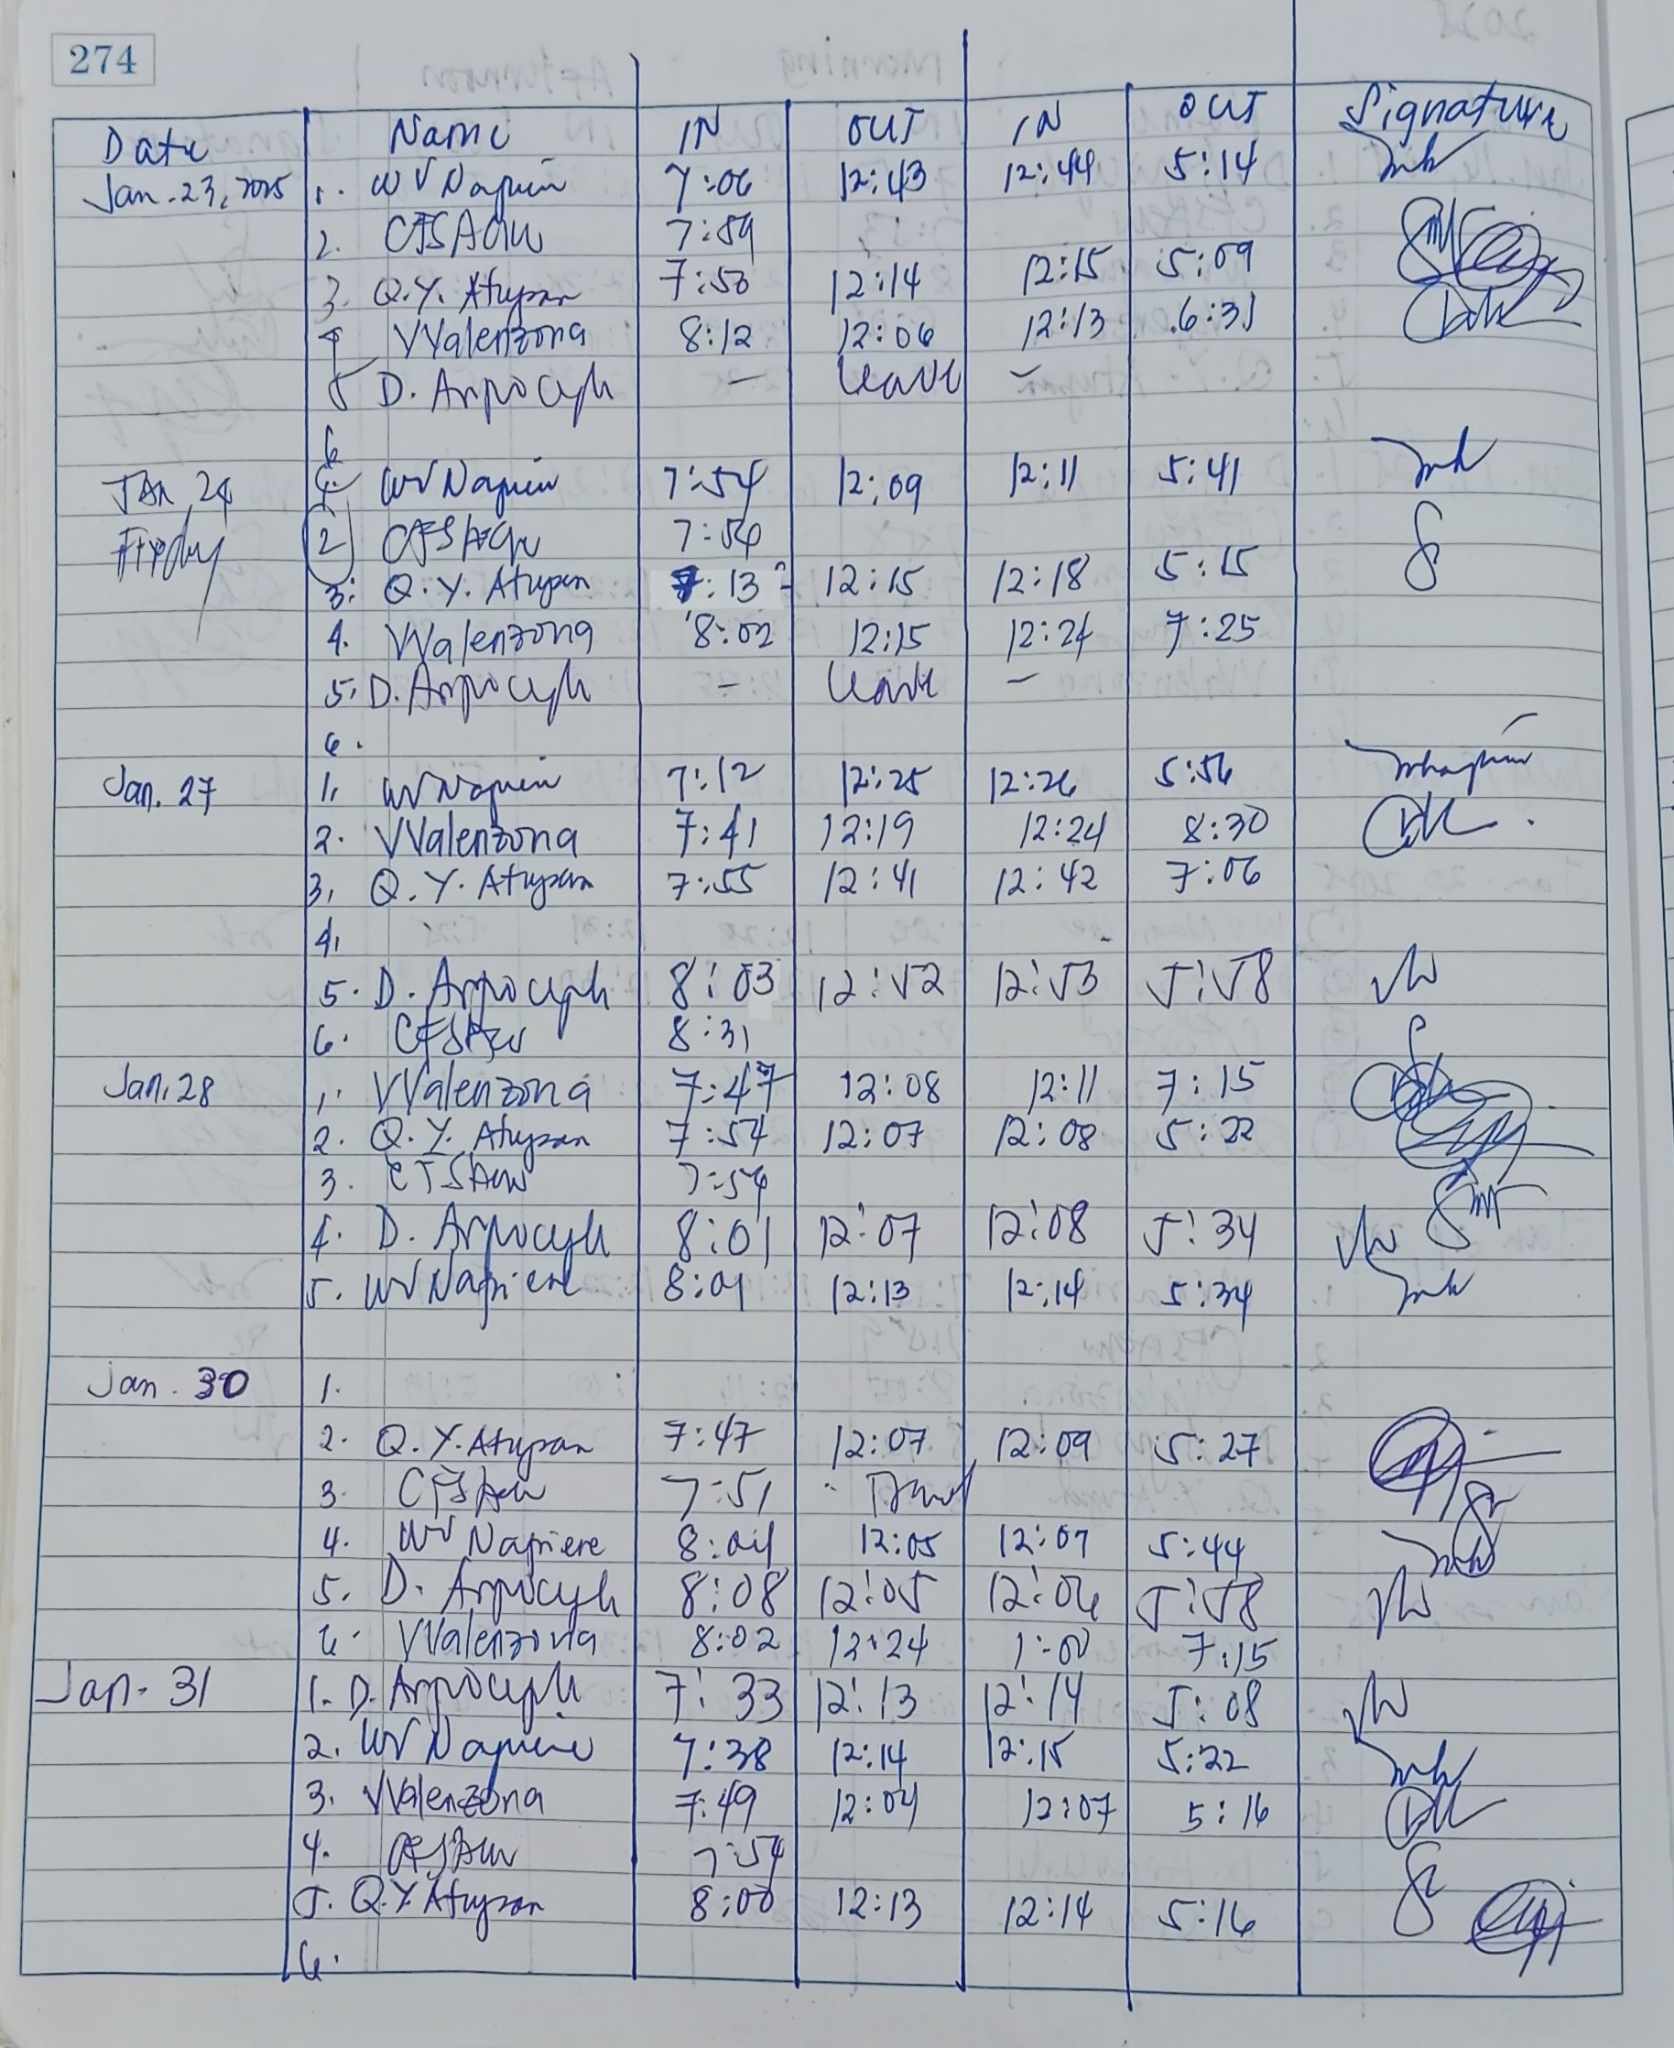 274
Date Name IN OUT IN OUT Signature
Jan. 23, 2025 1. WV Napiere 7:06 12:43 12:44 5:14
2. CFSAclu 7:59
3. Q.Y. Atupan 7:50 12:14 12:15 5:09
4 VValenzona 8:12 12:06 12:13 6:31
5 D. Arpoceph — leave —
6
JAN 24 1. WV Napiere 7:54 12:09 12:11 5:41
Friday 2 7:54
3. Q.Y. Atupan 7:13 12:15 12:18 5:15
4. VValenzona 8:02 12:15 12:24 7:25
5. D. Arpoceph — leave —
6.
Jan. 27 1. WV Napiere 7:12 12:25 12:26 5:56
2. VValenzona 7:41 12:19 12:24 8:30
3. Q.Y. Atupan 7:55 12:41 12:42 7:06
4.
5. D. Arpoceph 8:03 12:52 12:53 5:58
6. 8:31
Jan. 28 1. VValenzona 7:47 12:08 12:11 7:15
2. Q.Y. Atupan 7:54 12:07 12:08 5:22
3. 7:54
4. D. Arpoceph 8:01 12:07 12:08 5:34
5. WV Napiere 8:01 12:13 12:14 5:34
Jan. 30 1.
2. Q.Y. Atupan 7:47 12:07 12:09 5:27
3. 7:51
4. WV Napiere 8:04 12:05 12:07 5:44
5. D. Arpoceph 8:08 12:05 12:06 5:58
6. VValenzona 8:02 12:24 1:00 7:15
Jan. 31 1. D. Arpoceph 7:33 12:13 12:14 5:08
2. WV Napiere 7:38 12:14 12:15 5:22
3. VValenzona 7:49 12:04 12:07 5:16
4. 7:54
5. Q.Y. Atupan 8:00 12:13 12:14 5:16
6.